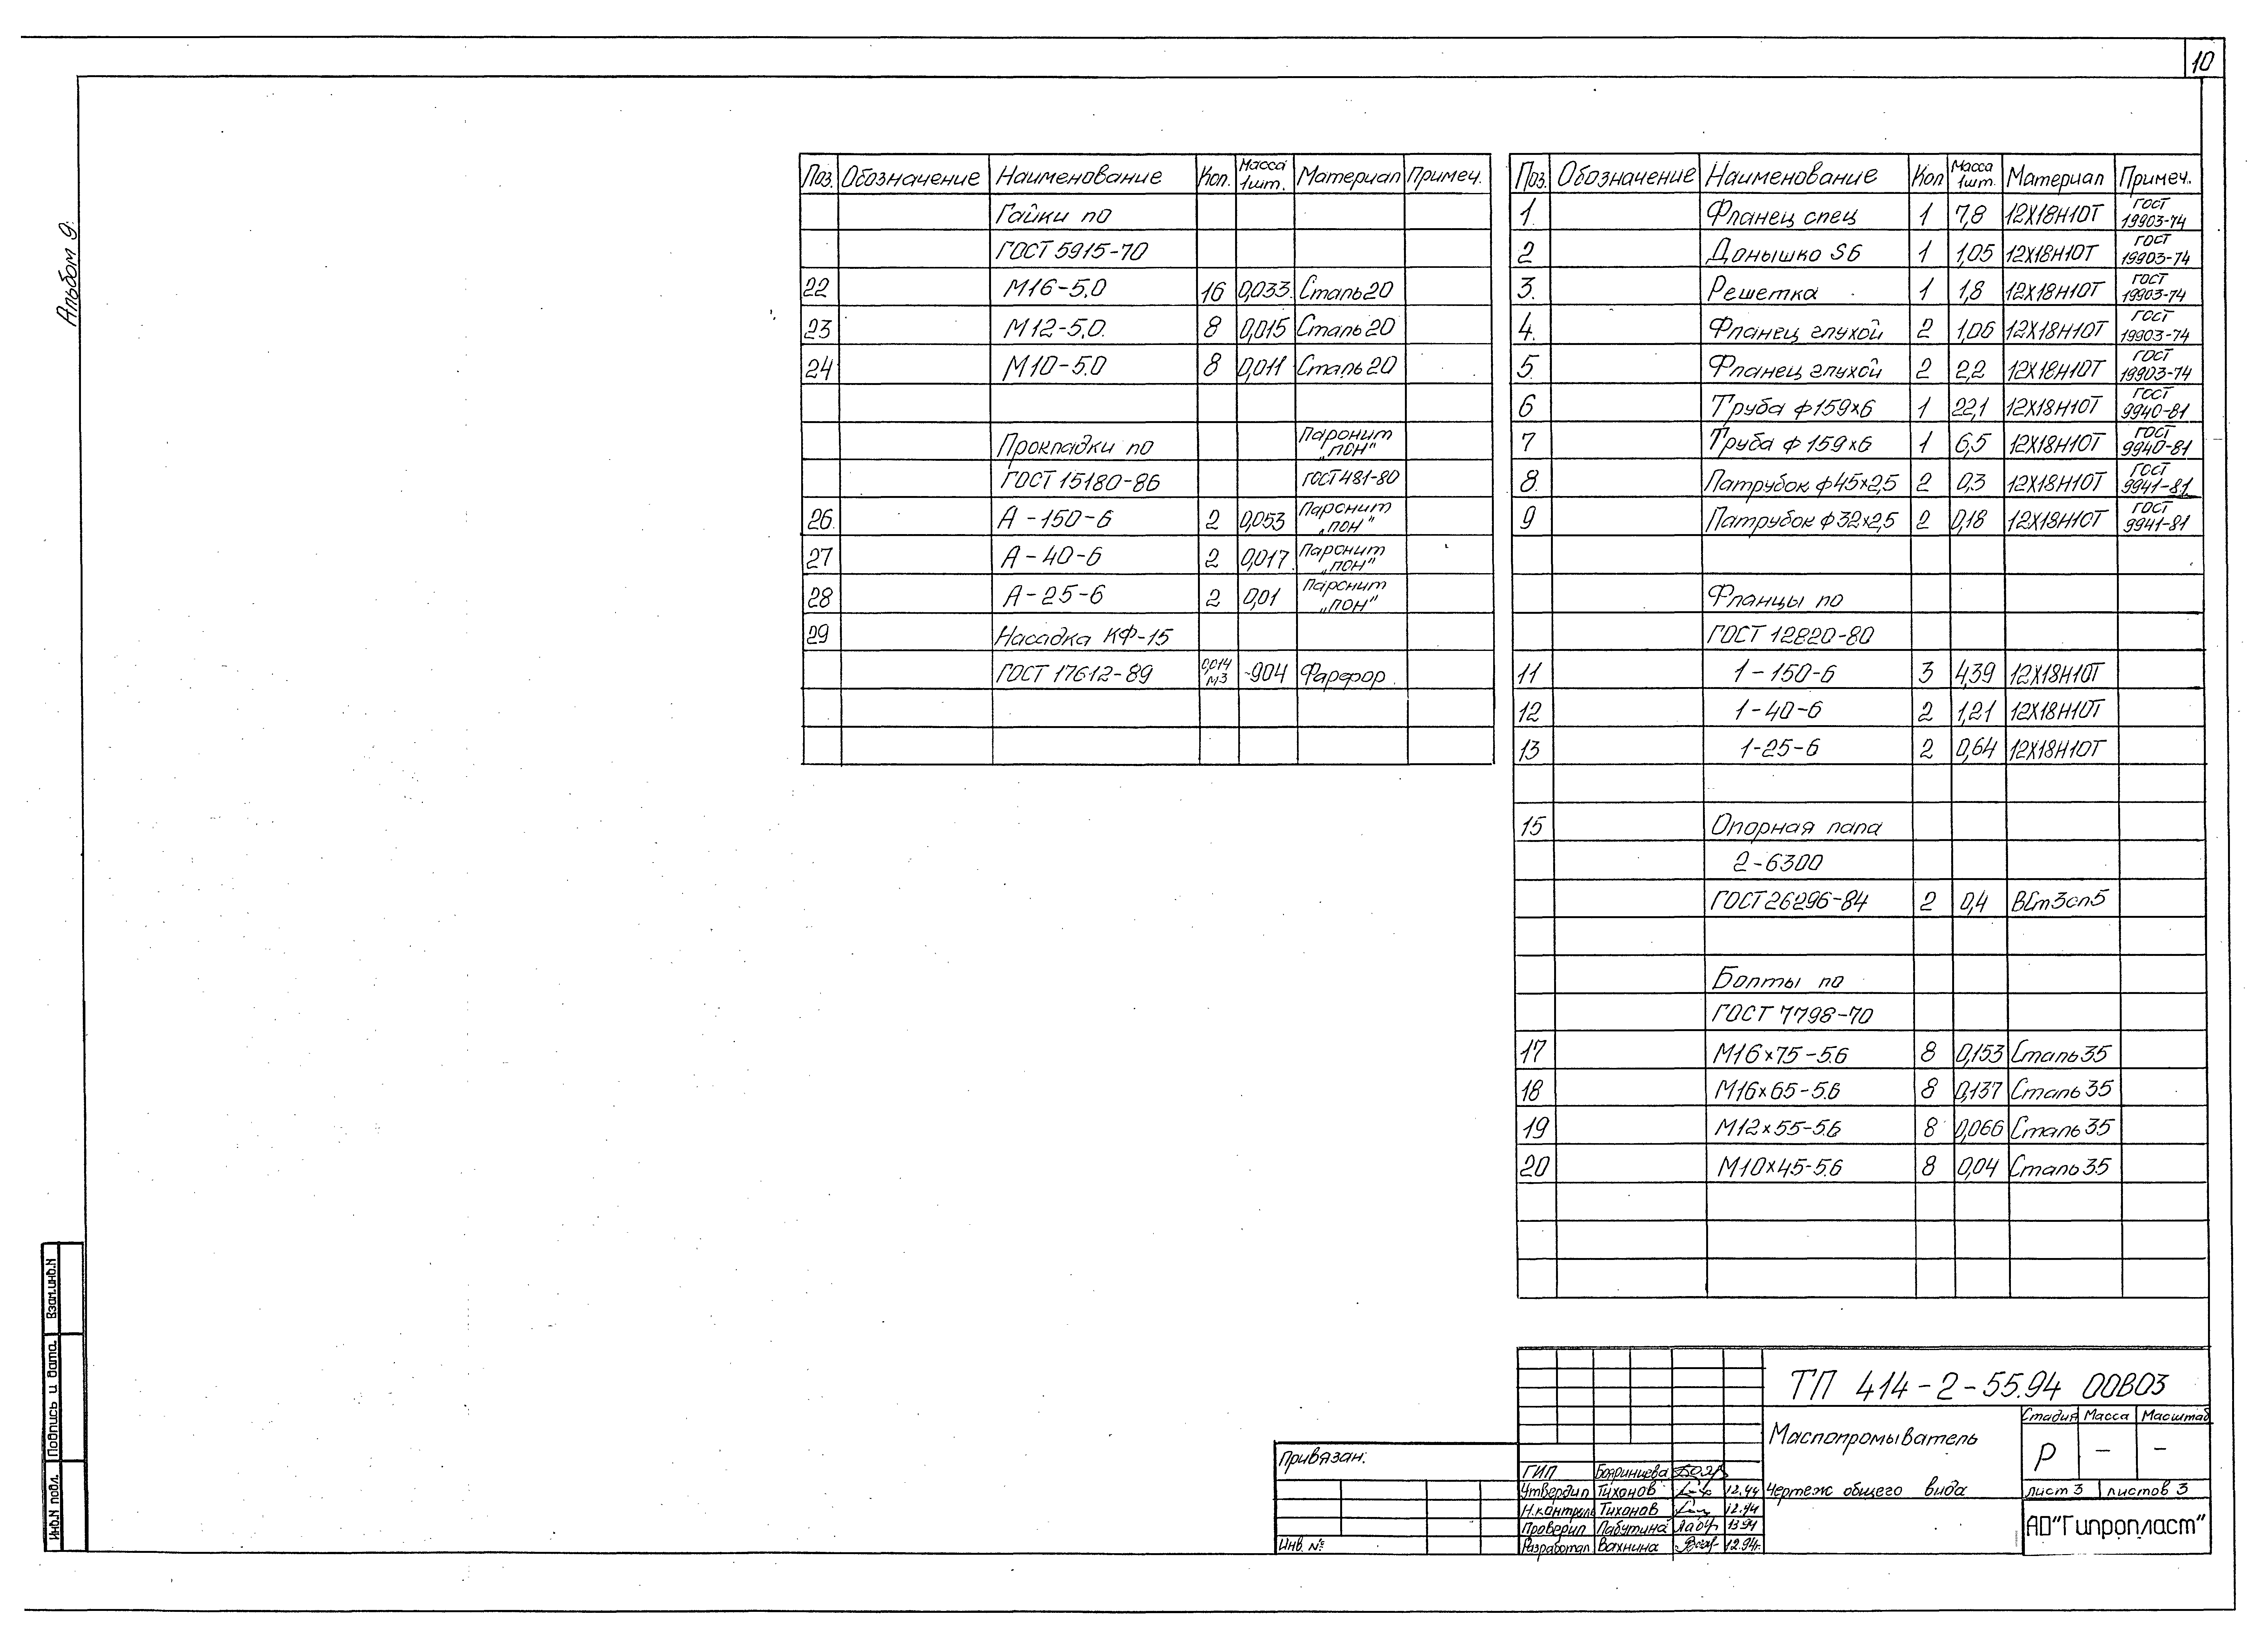 10
Альбом 9
Поз. Обозначение Наименование Кол. Масса 1шт. Материал Примеч.
Гайки по
ГОСТ 5915-70
22 М16-5.0 16 0,033 Сталь20
23 М12-5.0. 8 0,015 Сталь20
24 М10-5.0 8 0,011 Сталь20
Прокладки по Паронит „ПОН"
ГОСТ 15180-86 ГОСТ 481-80
26. А-150-6 2 0,053 Паронит „ПОН"
27 А-40-6 2 0,017 Паронит „ПОН"
28 А-25-6 2 0,01 Паронит „ПОН"
29 Насадка КФ-15
ГОСТ 17612-89 0,014 м3 ~904 Фарфор
Поз. Обозначение Наименование Кол Масса 1шт. Материал Примеч.
1. Фланец спец 1 7,8 12Х18Н10Т ГОСТ 19903-74
2 Донышко S6 1 1,05 12Х18Н10Т ГОСТ 19903-74
3. Решетка 1 1,8 12Х18Н10Т ГОСТ 19903-74
4. Фланец глухой 2 1,06 12Х18Н10Т ГОСТ 19903-74
5. Фланец глухой 2 2,2 12Х18Н10Т ГОСТ 19903-74
6 Труба ф159х6 1 22,1 12Х18Н10Т ГОСТ 9940-81
7 Труба ф159х6 1 6,5 12Х18Н10Т ГОСТ 9940-81
8. Патрубок ф45х2,5 2 0,3 12Х18Н10Т ГОСТ 9941-81
9 Патрубок ф32х2,5 2 0,18 12Х18Н10Т ГОСТ 9941-81
Фланцы по
ГОСТ 12820-80
11 1-150-6 3 4,39 12Х18Н10Т
12 1-40-6 2 1,21 12Х18Н10Т
13 1-25-6 2 0,64 12Х18Н10Т
15 Опорная лапа
2-6300
ГОСТ 26296-84 2 0,4 ВСт3сп5
Болты по
ГОСТ 7798-70
17 М16х75-5.6 8 0,153 Сталь35
18 М16х65-5.6 8 0,137 Сталь35
19 М12х55-5.6 8 0,066 Сталь35
20 М10х45-5.6 8 0,04 Сталь35
Взам.инв.N
Подпись и дата.
Инв.N подл.
Привязан:
Инв. №
ТП 414-2-55.94 00ВО3
Маслопромыватель
Чертеж общего вида
Стадия Масса Масштаб
Р - -
лист 3 листов 3
АО"Гипропласт"
ГИП Бояринцева
Утвердил Тихонов 12.94
Н.контроль Тихонов 12.94
Проверил Лабутина 1394
Разработал Вахнина 12.94г.